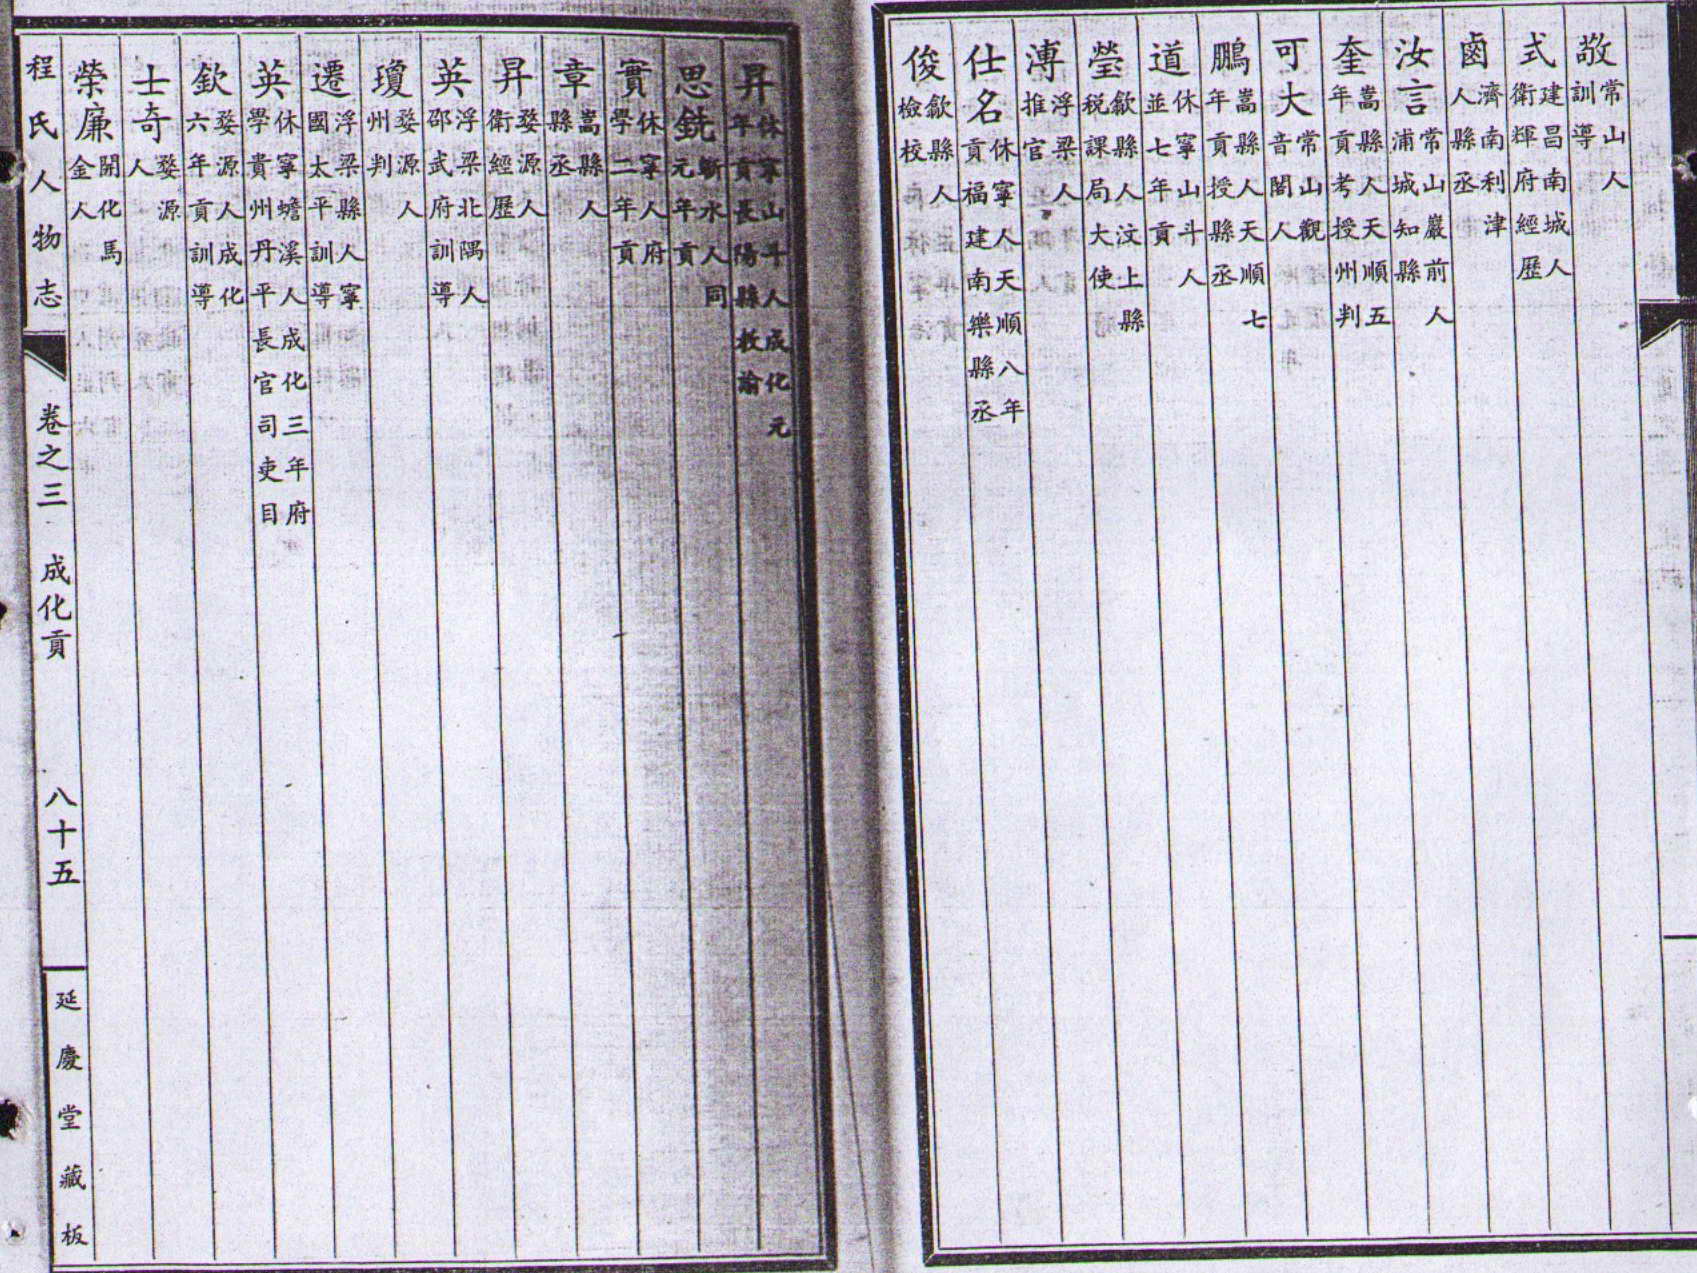 敬常山人訓導
式建昌南城人衛輝府經歷
鹵濟南利津人縣丞
汝言常山嚴前人浦城知縣
奎嵩縣人天順五年貢考授州判
可大常山觀音閣人
鵬嵩縣人天順七年貢授縣丞
道休寧山斗人並七年貢
瑩歙縣人汶上縣稅課局大使
溥浮梁人推官
仕名休寧人天順八年貢福建南樂縣丞
俊歙縣人檢校
昇休寧山斗人成化元年貢長陽縣教諭
思銑蘄水人同元年貢
實休寧人府學二年貢
章嵩縣人縣丞
昇婺源人衛經歷
英浮梁北隅人邵武府訓導
瓊婺源人州判
遷浮梁縣人寧國太平訓導
英休寧蟾溪人成化三年府學貢貴州丹平長官司吏目
欽婺源人成化六年貢訓導
士奇婺源人
榮廉開化馬金人
程氏人物志 卷之三 成化貢 八十五 延慶堂藏板